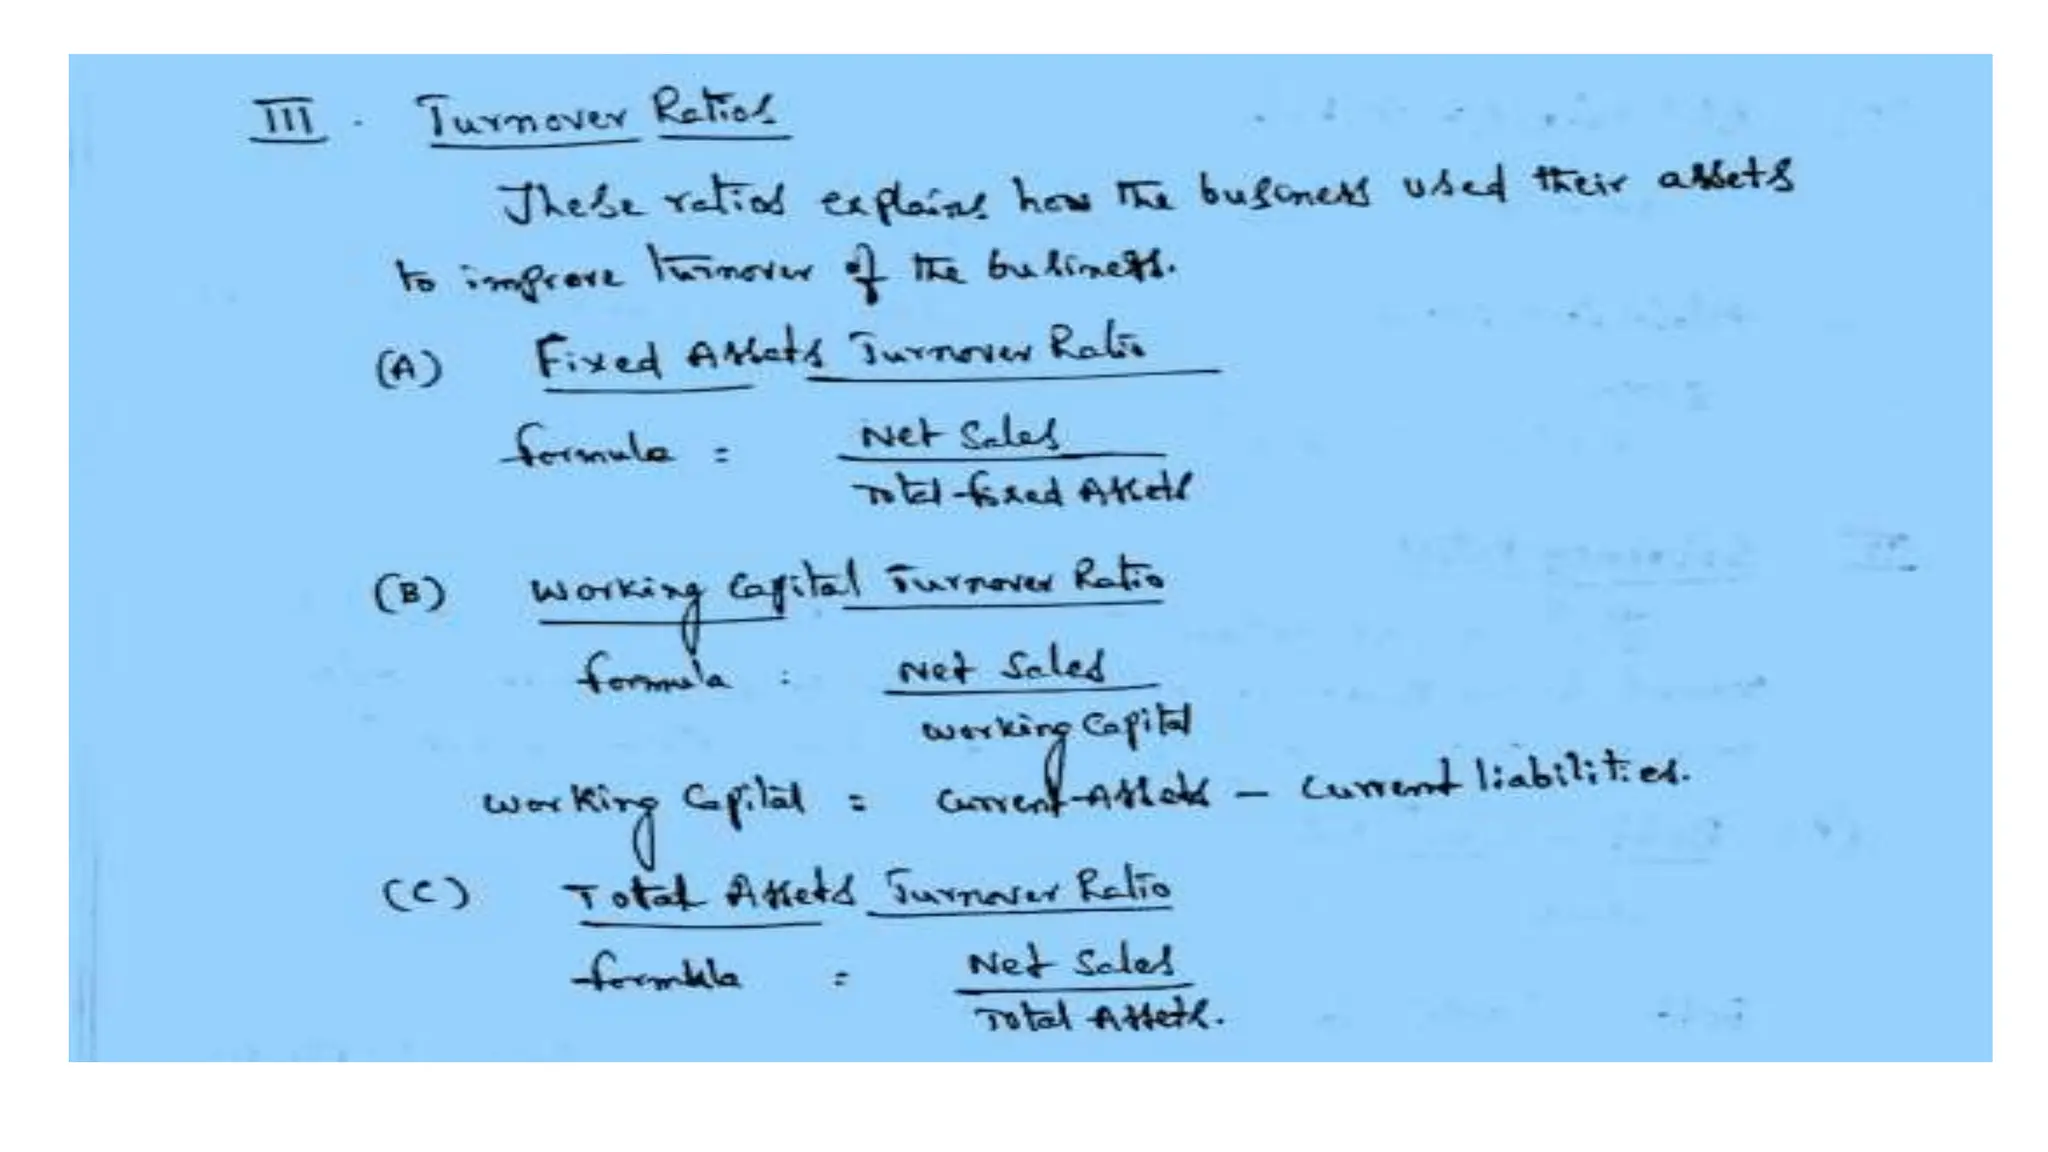 III. Turnover Ratios
These ratios explains how the business used their assets
to improve turnover of the business.
(A) Fixed Assets Turnover Ratio
formula = Net Sales
Total fixed Assets
(B) Working Capital Turnover Ratio
formula : Net Sales
Working Capital
Working Capital = Current Assets – Current liabilities.
(C) Total Assets Turnover Ratio
formula = Net Sales
Total Assets.